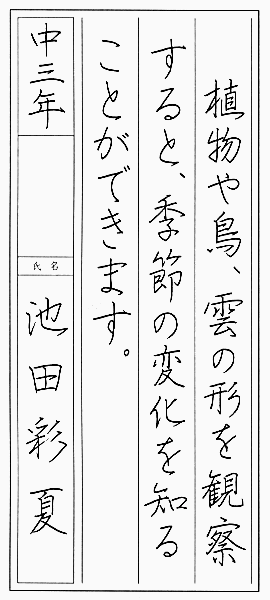 植物や鳥、雲の形を観察
すると、季節の変化を知る
ことができます。
中三年
氏名
池田彩夏